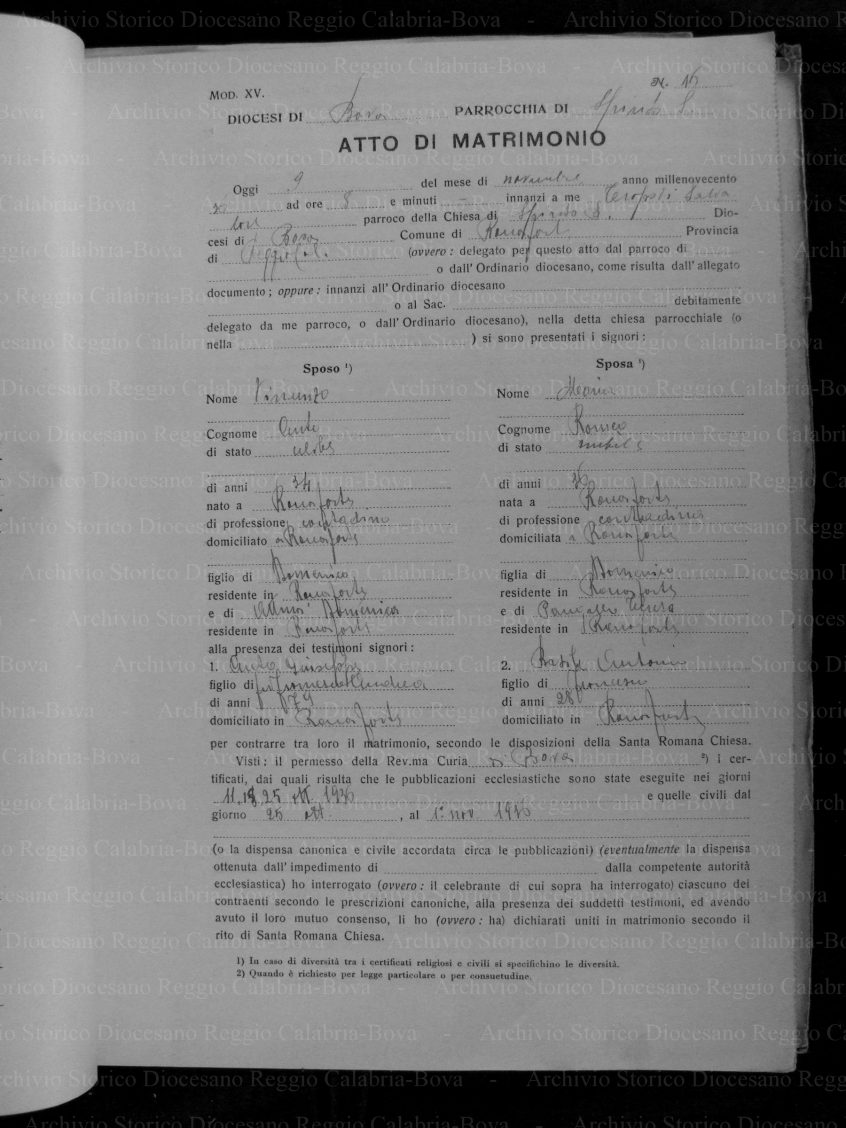 N. 16
MOD. XV.
DIOCESI DI Bova PARROCCHIA DI Spirito S.
ATTO DI MATRIMONIO
Oggi 9 del mese di novembre anno millenovecento
ad ore 8 e minuti - innanzi a me Teroposi Salva
tore parroco della Chiesa di Spirito S. Dio-
cesi di Bova Comune di Roccaforte Provincia
di Reggio Cal. (ovvero: delegato per questo atto dal parroco di
o dall'Ordinario diocesano, come risulta dall'allegato
documento; oppure: innanzi all'Ordinario diocesano
o al Sac. debitamente
delegato da me parroco, o dall'Ordinario diocesano), nella detta chiesa parrocchiale (o
nella ) si sono presentati i signori:
Sposo ¹) Sposa ¹)
Nome Vincenzo Nome Maria
Cognome Cognome Romeo
di stato celibe di stato nubile
di anni 34 di anni
nato a Roccaforte nata a Roccaforte
di professione contadino di professione contadina
domiciliato a Roccaforte domiciliata a Roccaforte
figlio di Domenico figlia di Domenico
residente in Roccaforte residente in Roccaforte
e di Domenica e di Teresa
residente in Roccaforte residente in Roccaforte
alla presenza dei testimoni signori:
1. Giuseppe 2. Antonio
figlio di Andrea figlio di Francesco
di anni di anni 28
domiciliato in Roccaforte domiciliato in Roccaforte
per contrarre tra loro il matrimonio, secondo le disposizioni della Santa Romana Chiesa.
Visti: il permesso della Rev.ma Curia di Bova ²) i cer-
tificati, dai quali risulta che le pubblicazioni ecclesiastiche sono state eseguite nei giorni
11, 18, 25 ott. 1936 e quelle civili dal
giorno 25 ott. , al 1° nov 1936
(o la dispensa canonica e civile accordata circa le pubblicazioni) (eventualmente la dispensa
ottenuta dall'impedimento di dalla competente autorità
ecclesiastica) ho interrogato (ovvero: il celebrante di cui sopra ha interrogato) ciascuno dei
contraenti secondo le prescrizioni canoniche, alla presenza dei suddetti testimoni, ed avendo
avuto il loro mutuo consenso, li ho (ovvero: ha) dichiarati uniti in matrimonio secondo il
rito di Santa Romana Chiesa.
1) In caso di diversità tra i certificati religiosi e civili si specifichino le diversità.
2) Quando è richiesto per legge particolare o per consuetudine.
Archivio Storico Diocesano Reggio Calabria-Bova